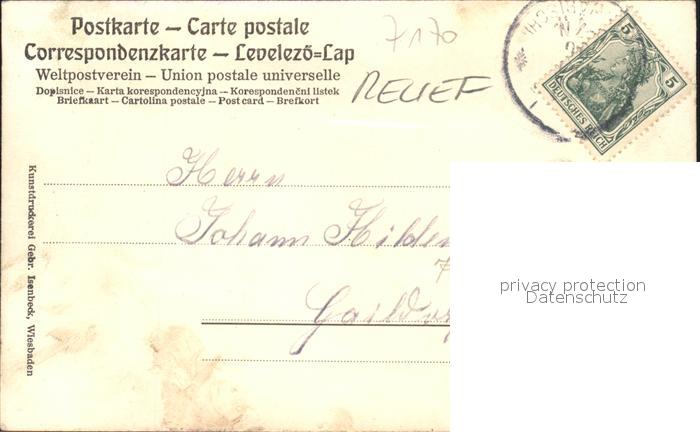 Postkarte – Carte postale
Correspondenzkarte – Levelező=Lap
Weltpostverein – Union postale universelle
Dopisnice – Karta korespondencyjna – Korespondenční listek
Briefkaart – Cartolina postale – Post card – Brefkort
7170
RELIEF
5
5
DEUTSCHES REICH
Herrn
Johann Hilden
Kunstdruckerei Gebr. Isenbeck, Wiesbaden
privacy protection
Datenschutz